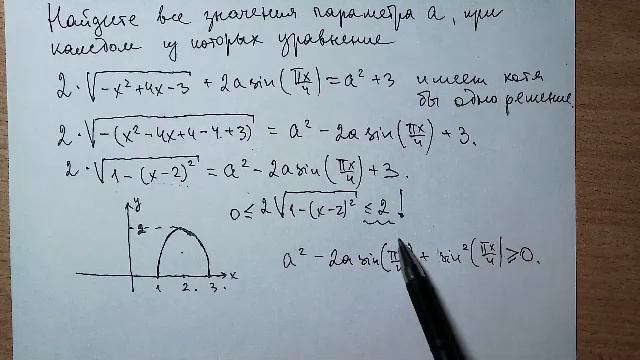 Найдите все значения параметра a, при
каждом из которых уравнение
2·√(-x²+4x-3) + 2a sin(πx/4) = a²+3 имеет хотя
бы одно решение.
2·√(-(x²-4x+4-4+3)) = a² - 2a sin(πx/4) + 3.
2·√(1-(x-2)²) = a² - 2a sin(πx/4) + 3.
0 ≤ 2√(1-(x-2)²) ≤ 2 !
y
2
1 2. 3. x
a² - 2a sin(πx/4) + sin²(πx/4) ≥ 0.